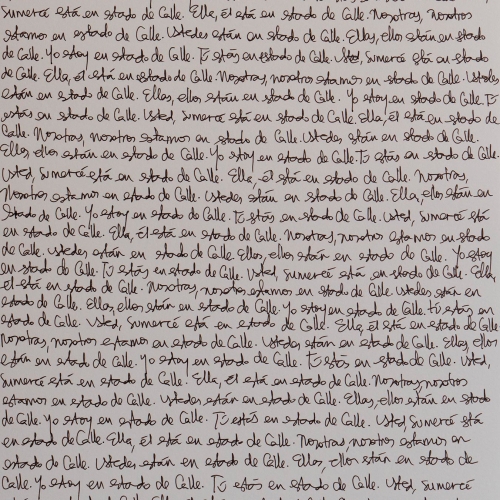 sumercé está en estado de Calle. Ella, él está en estado de Calle. Nosotras, nosotros
estamos en estado de Calle. Ustedes están en estado de Calle. Ellas, ellos están en estado
de Calle. Yo estoy en estado de Calle. Tú estás en estado de Calle. Usted, sumercé está en estado
de Calle. Ella, él está en estado de Calle. Nosotras, nosotros estamos en estado de Calle. Ustedes
están en estado de Calle. Ellas, ellos están en estado de Calle. Yo estoy en estado de Calle. Tú
estás en estado de Calle. Usted, sumercé está en estado de Calle. Ella, él está en estado de
Calle. Nosotras, nosotros estamos en estado de Calle. Ustedes están en estado de Calle.
Ellas, ellos están en estado de Calle. Yo estoy en estado de Calle. Tú estás en estado de Calle.
Usted, sumercé está en estado de Calle. Ella, él está en estado de Calle. Nosotras,
Nosotros estamos en estado de Calle. Ustedes están en estado de Calle. Ellas, ellos están en
Estado de Calle. Yo estoy en estado de Calle. Tú estás en estado de Calle. Usted, sumercé está
en estado de Calle. Ella, él está en estado de Calle. Nosotras, nosotros estamos en estado
de Calle. Ustedes están en estado de Calle. Ellas, ellos están en estado de Calle. Yo estoy
en estado de Calle. Tú estás en estado de Calle. Usted, sumercé está en estado de Calle. Ella,
él está en estado de Calle. Nosotras, nosotros estamos en estado de Calle. Ustedes están en
estado de Calle. Ellas, ellos están en estado de Calle. Yo estoy en estado de Calle. Tú estás en
estado de Calle. Usted, sumercé está en estado de Calle. Ella, él está en estado de Calle
Nosotras, nosotros estamos en estado de Calle. Ustedes están en estado de Calle. Ellas, ellos
están en estado de Calle. Yo estoy en estado de Calle. Tú estás en estado de Calle. Usted,
sumercé está en estado de Calle. Ella, él está en estado de Calle. Nosotras, nosotros
estamos en estado de Calle. Ustedes están en estado de Calle. Ellas, ellos están en estado
de Calle. Yo estoy en estado de Calle. Tú estás en estado de Calle. Usted, sumercé está
en estado de Calle. Ella, él está en estado de Calle. Nosotras, nosotros estamos en
estado de Calle. Ustedes están en estado de Calle. Ellas, ellos están en estado de
Calle. Yo estoy en estado de Calle. Tú estás en estado de Calle. Usted, sumercé